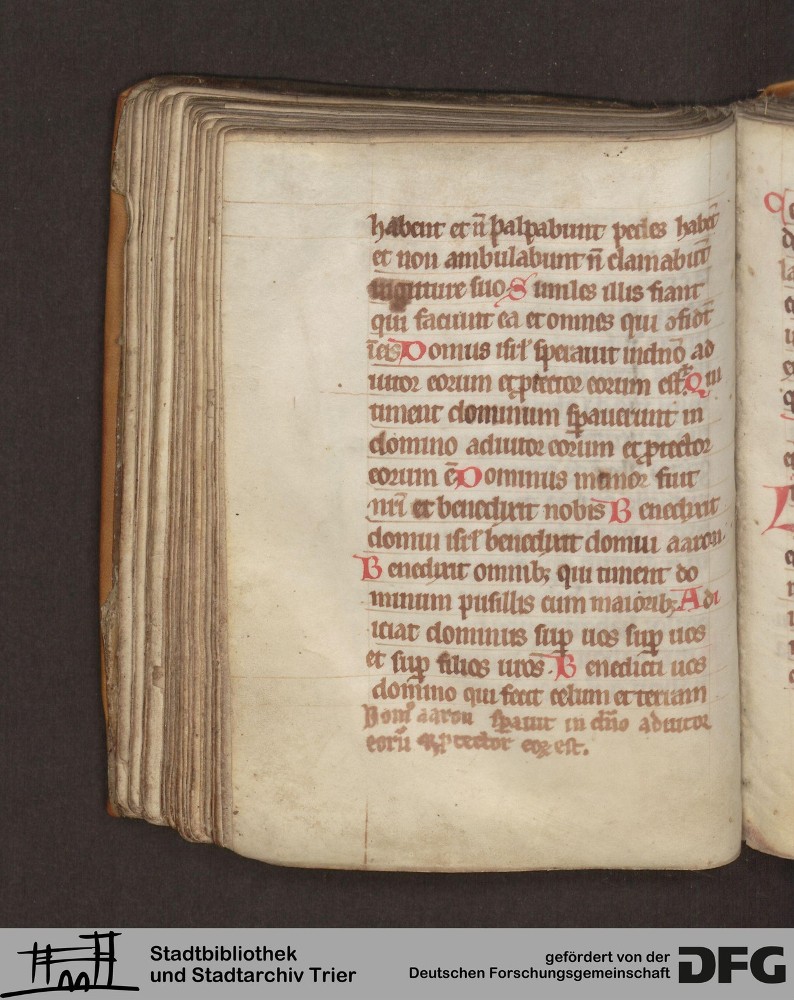 habent et n̄ palpabunt pedes habēt
et non ambulabunt n̄ clamabūt
in gutture suo S imiles illis fiant
qui faciunt ea et omnes qui ꝯfidūt
ī eis D omus isrl̄ sperauit in dn̄o ad
iutor eorum et ꝓtector eorum est. Q ui
timent dominum sp̄auerunt in
domino adiutor eorum et ꝓtector
eorum ē D ominus memor fuit
nr̄i et benedixit nobis B enedixit
domui isrl̄ benedixit domui aaron.
B enedixit omnibꝫ qui timent do
minum pusillis cum maioribꝫ A di
iciat dominus sup̄ uos sup̄ uos
et sup̄ filios ur̄os. B enedicti uos
domino qui fecit celum et terram
Domꝰ aaron sp̄auit in dn̄o adiutor
eorū et ꝓtector eoꝝ est.
Stadtbibliothek
und Stadtarchiv Trier
gefördert von der
Deutschen Forschungsgemeinschaft
DFG